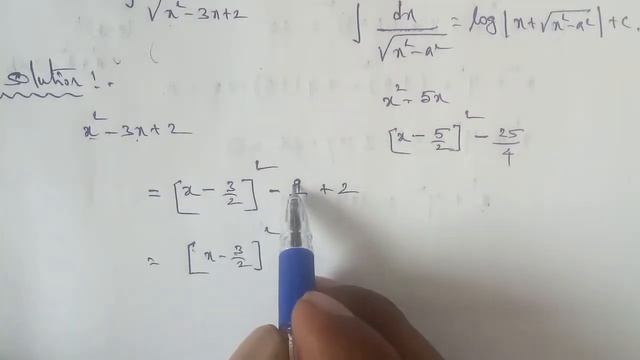 √x² - 3x + 2
∫ dx / √x² - a² = log |x + √x² - a²| + c.
Solution :-
x² - 3x + 2
x² - 5x
[x - 5/2]² - 25/4
= [x - 3/2]² - 9 + 2
= [x - 3/2]²